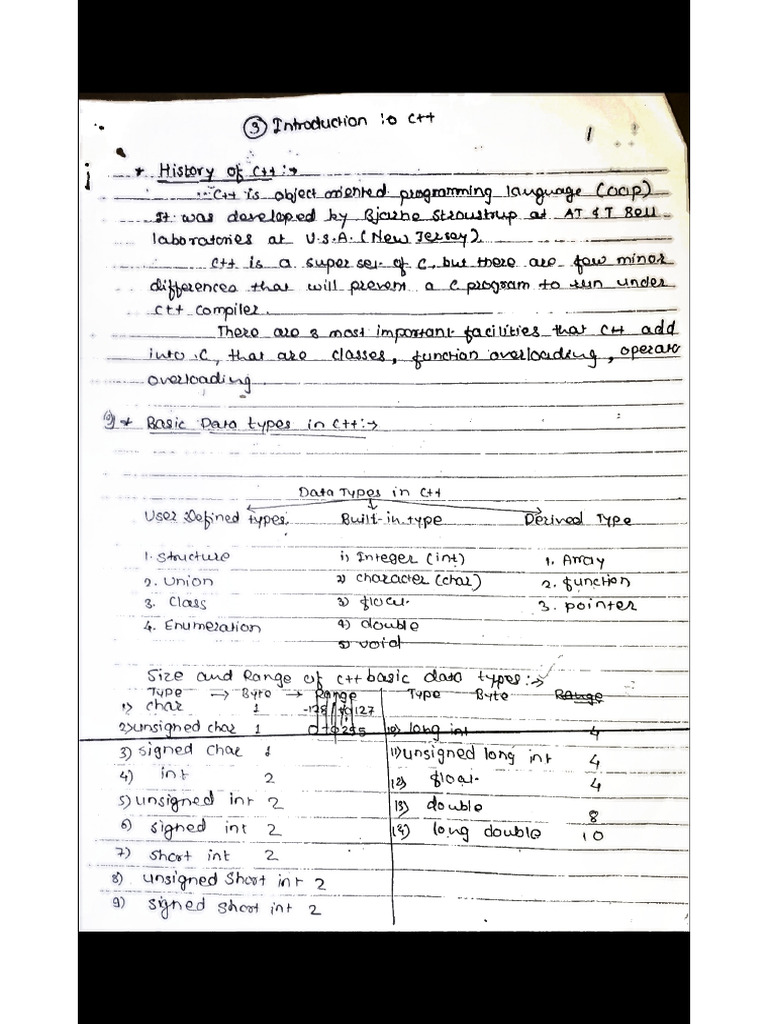 ③ Introduction to C++
1
* History of C++ :→
C++ is object oriented programming language (OOP)
It was developed by Bjarne Stroustrup at AT & T Bell
laboratories at U.S.A. (New Jersey).
C++ is a super set of C, but there are few minor
differences that will prevent a C program to run under
C++ compiler.
There are 3 most important facilities that C++ add
into C, that are classes, function overloading, operato
overloading.
* Basic Data types in C++ :→
Data Types in C++
User Defined types. Built-in type Derived Type
1. Structure 1) Integer (int) 1. Array
2. Union 2) character (char) 2. function
3. Class 3) float 3. pointer
4. Enumeration 4) double
5) void
Size and Range of C++ basic data types :→
Type → Byte → Range Type Byte Range
1) char 1 -128 to 127
2) unsigned char 1 0 to 255 10) long int 4
3) signed char 1 11) unsigned long int 4
4) int 2 12) float 4
5) unsigned int 2 13) double 8
6) signed int 2 14) long double 10
7) short int 2
8) unsigned short int 2
9) signed short int 2